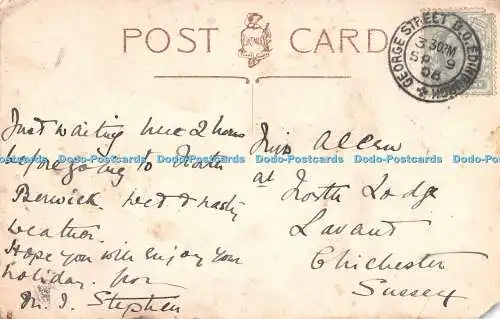 POST CARD
GEORGE STREET B.O. EDINBURGH
3 30PM
SP 9
08
Just waiting here 2 hours
before going to North
Berwick wet & nasty
weather.
Hope you will enjoy your
holiday. from
M. I. Stephen
Miss Allen
at North Lodge
Lavant
Chichester
Sussex
Dodo-Postcards Dodo-Postcards Dodo-Postcards Dodo-Postcards
Dodo-Postcards Dodo-Postcards Dodo-Postcards Dodo-Postcards